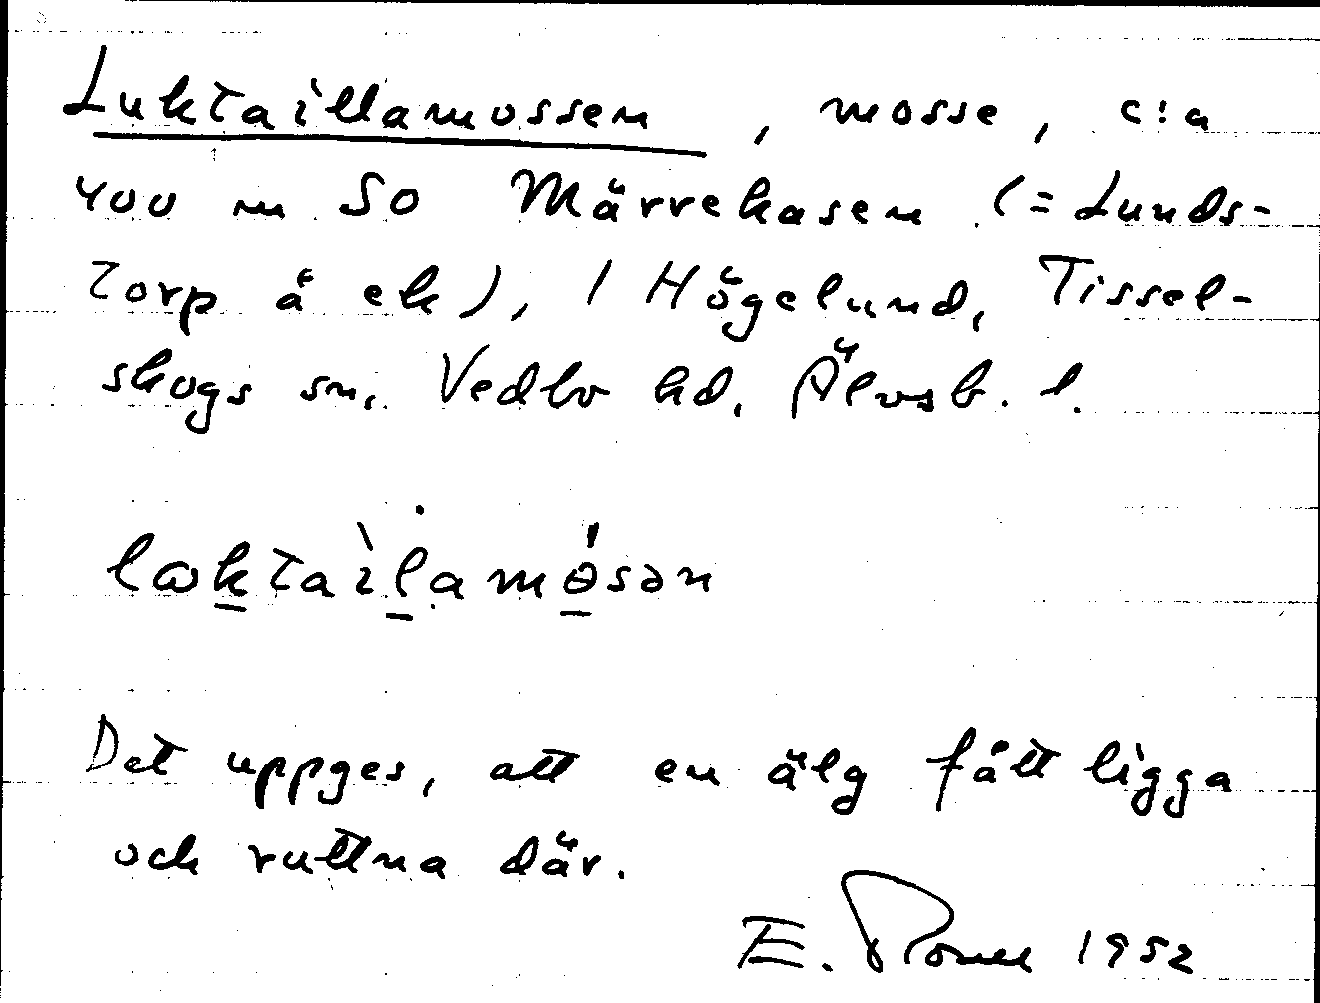 Luktaillamossen, mosse, c:a
400 m SO Märrekasen (= Lunds-
torp å ek), / Högelund, Tissel-
skogs sn, Vedbo hd, Älvsb. l.
Det uppges, att en älg fått ligga
och ruttna där.
E. 1952